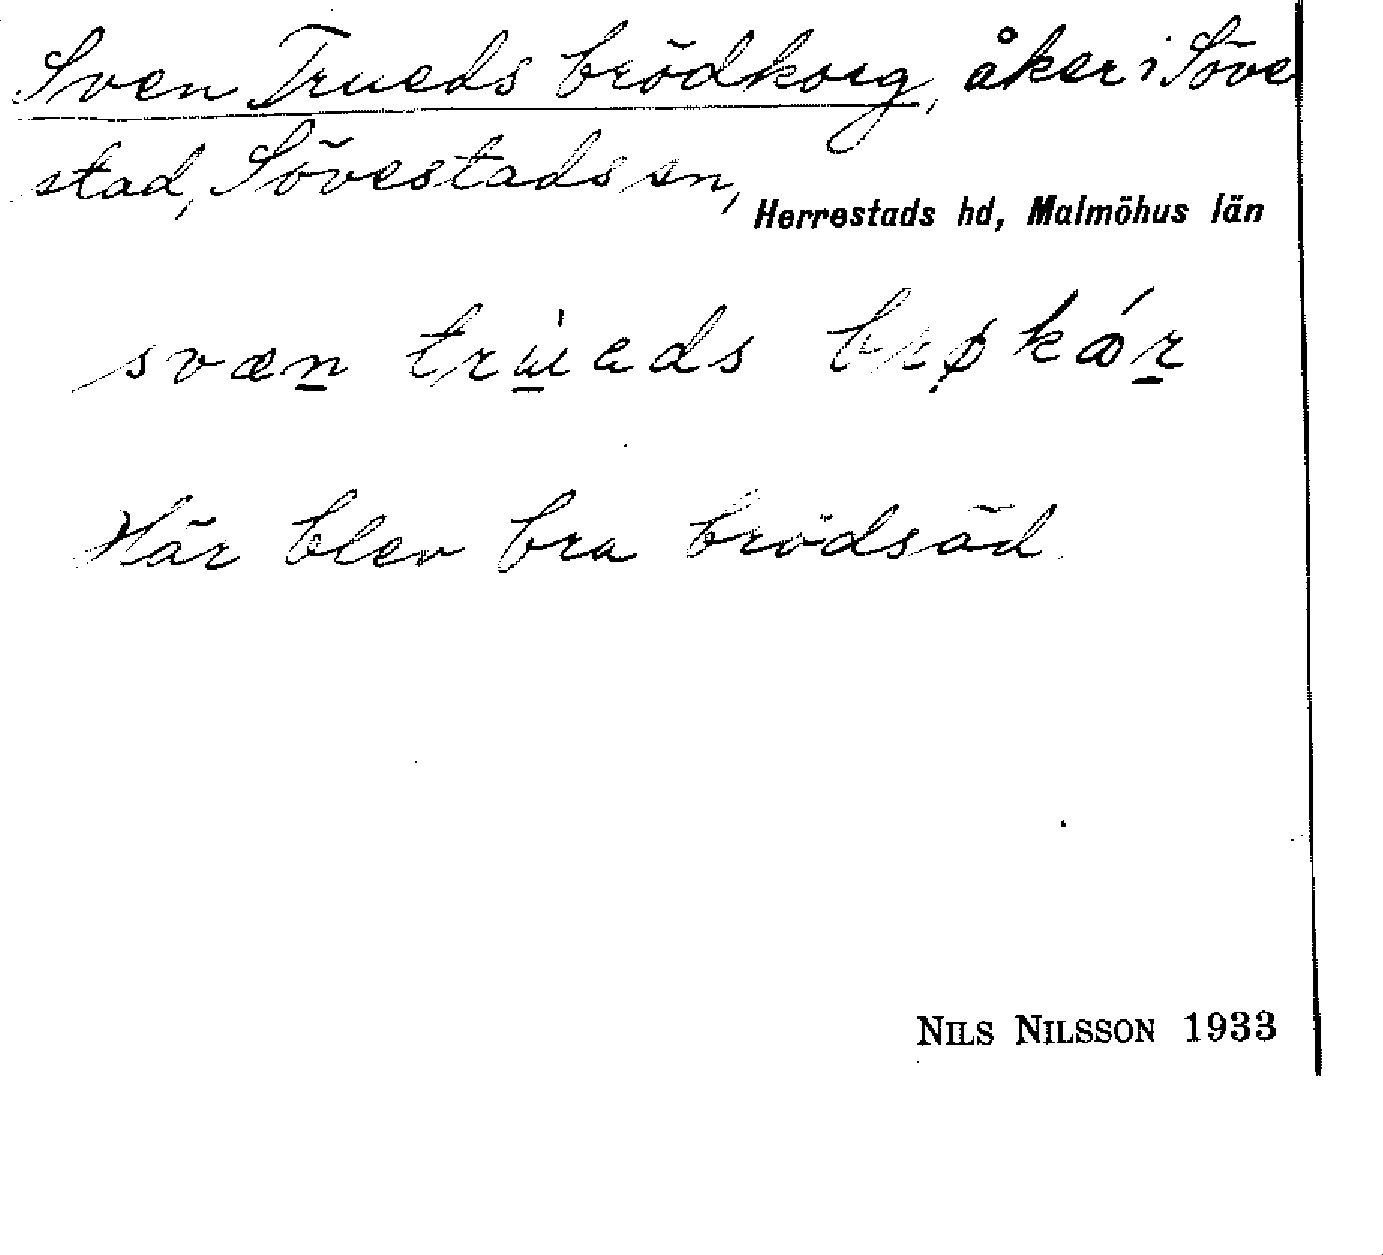 Sven Trueds brödkorg, åker i Söve
stad, Sövestads sn,
Herrestads hd, Malmöhus län
svæn trùeds brøkǻr
Här blev bra brödsäd.
NILS NILSSON 1933